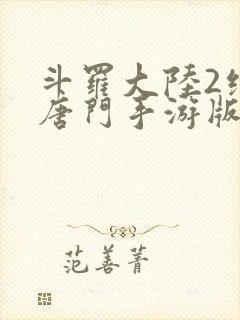 斗羅大陸2絕
唐門手游版
范善菁